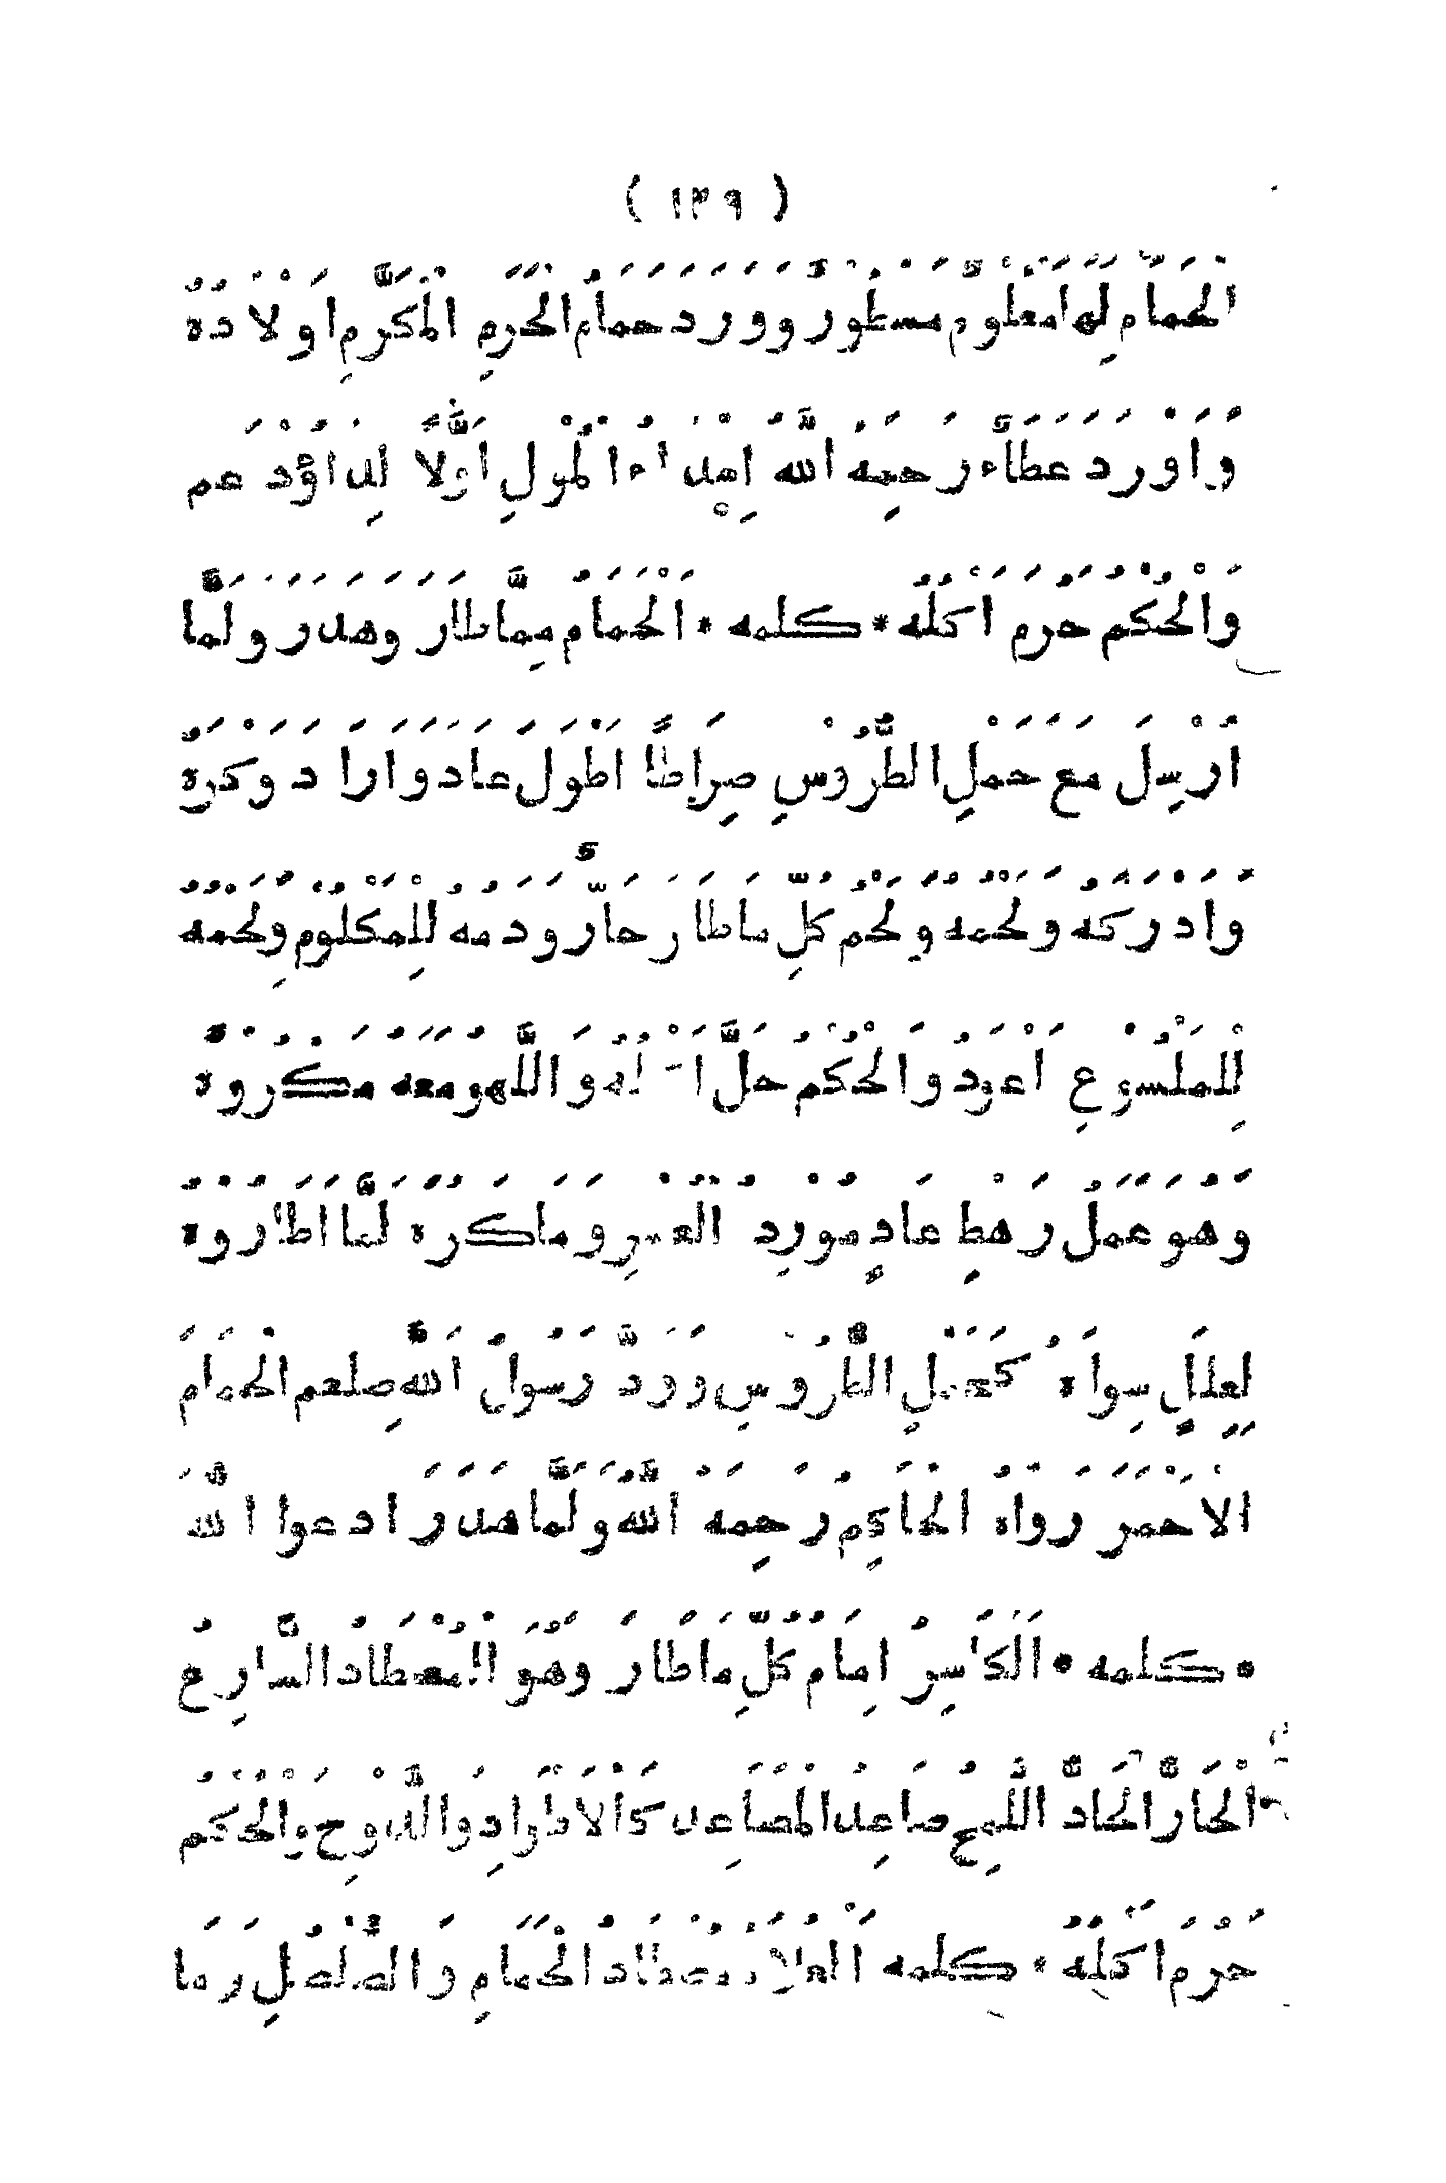 ( ١٣٩ )
الحَمَامِ لِهَا مَعْلُومٌ مَسْطُورٌ وَوَرَدَ حَمَامُ الحَرَمِ المُكَرَّمِ اَوْلَادُهُ
وَاَوْرَدَ عَطَاءٌ رَحِمَهُ اللّٰهُ اِهْدَاءُ المُوْلِ اَوَّلًا لِدَاؤُدَ عم
وَالْحُكْمُ حُرِمَ اَكْلُهُ * كلمه * اَلْحَمَامُ مِمَّا طَارَ وَهَدَرَ وَلَمَّا
اُرْسِلَ مَعَ حَمْلِ الطُّرُوْسِ صِرَاطًا اَطْوَلَ عَادَ وَارَادَ وَكْرَهُ
وَاَدْرَكَهُ وَلَحْمُهُ وَلَحْمُ كُلِّ مَا طَارَ حَارٌّ وَدَمُهُ لِلْمَكْلُوْمِ وَلَحْمُهُ
لِلْمَلْسُوْعِ اَعْوَدُ وَالْحُكْمُ حَلَّ وَاللَّهْوُ مَعَهُ مَكْرُوْهٌ
وَهُوَ عَمَلُ رَهْطِ عَادٍ مَوْرِدِ وَمَا كُرِهَ لَمَّا اَطَارُوْهُ
لِعِلَلٍ سِوَاهُ كَحَمْلِ الطُّرُوْسِ وَوَدَّ رَسُوْلُ اللّٰهِ صلعم الحَمَامَ
الاَحْمَرَ رَوَاهُ الحَاكِمُ رَحِمَهُ اللّٰهُ وَلَمَّا هَدَرَ ادعوا اللّٰهَ
* كلمه * اَلْكَاسِرُ اِمَامُ كُلِّ مَا طَارَ وَهُوَ المُصْطَادُ السَّارِعُ
الْحَارُّ الحَادُّ اللَّمْحِ صَاعِدُ المَصَاعِدِ كَالْاَطْوَادِ وَالدَّوْحِ وَالحُكْمُ
حُرِمَ اَكْلُهُ * كلمه مُصْطَادُ الْحَمَامِ وَالصُّلْصُلِ رَمَا